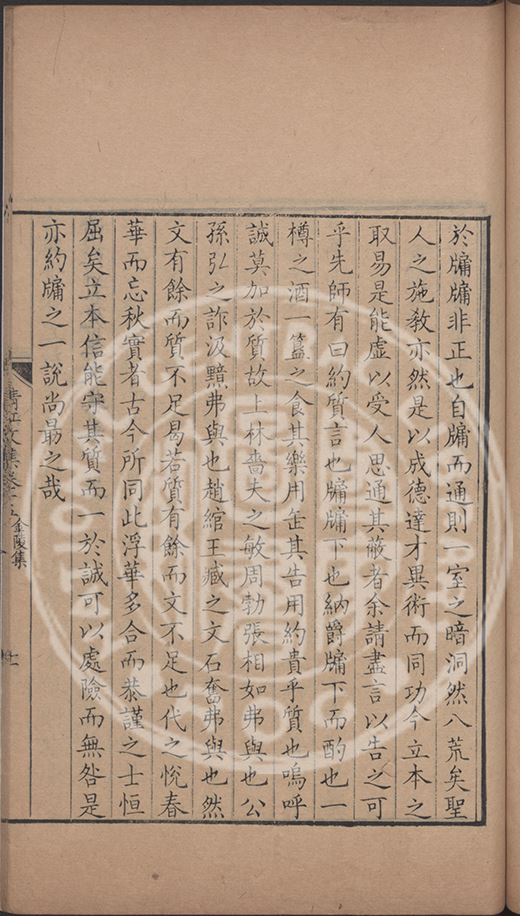 於牖牖非正也自牖而通則一室之暗洞然八荒矣聖
人之施教亦然是以成德達才異術而同功今立本之
取易是能虛以受人思通其蔽者余請盡言以告之可
乎先師有曰約質言也牖牖下也納爵牖下而酌也一
樽之酒一簋之食其樂用缶其告用約貴乎質也嗚呼
誠莫加於質故上林嗇夫之敏周勃張相如弗與也公
孫弘之詐汲黯弗與也趙綰王臧之文石奮弗與也然
文有餘而質不足曷若質有餘而文不足也代之悅春
華而忘秋實者古今所同此浮華多合而恭謹之士恒
屈矣立本信能守其質而一於誠可以處險而無咎是
亦約牖之一說尚勗之哉
清江文集卷十五金陵集